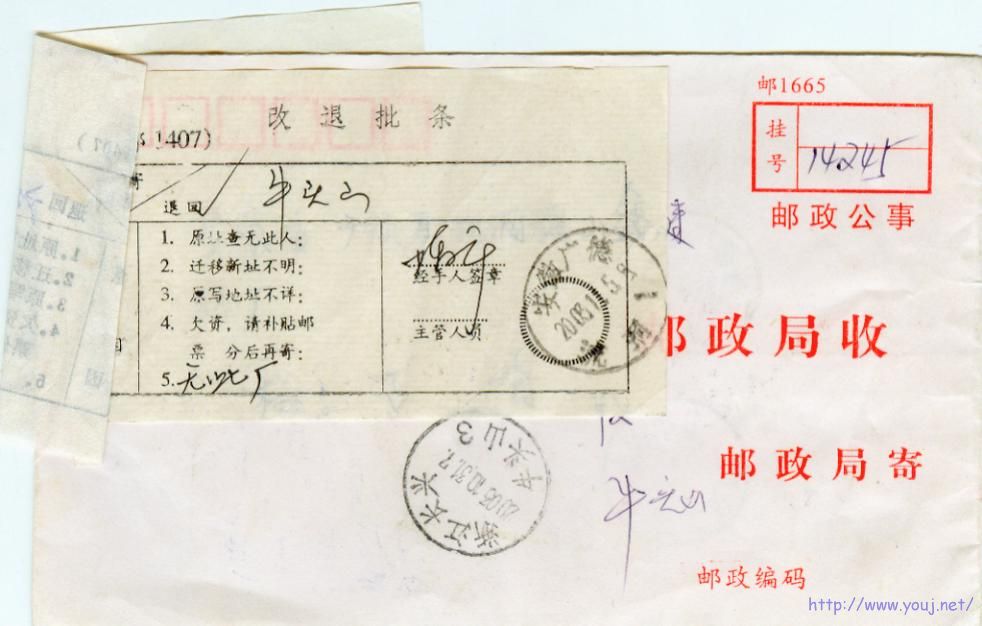 邮1665
挂号
14245
邮政公事
改退批条
1407)
退回
牛头山
1. 原址查无此人:
2. 迁移新址不明:
3. 原写地址不详:
4. 欠资,请补贴邮
票 分后再寄:
5. 无此厂
经手人签章
主管人员
安徽广德
邮政局收
邮政局寄
牛头山
邮政编码
浙江长兴
2005.10.31.
牛头山 3
退回
1. 原址
2. 迁移
3. 原写
4. 欠资
http://www.youj.net/